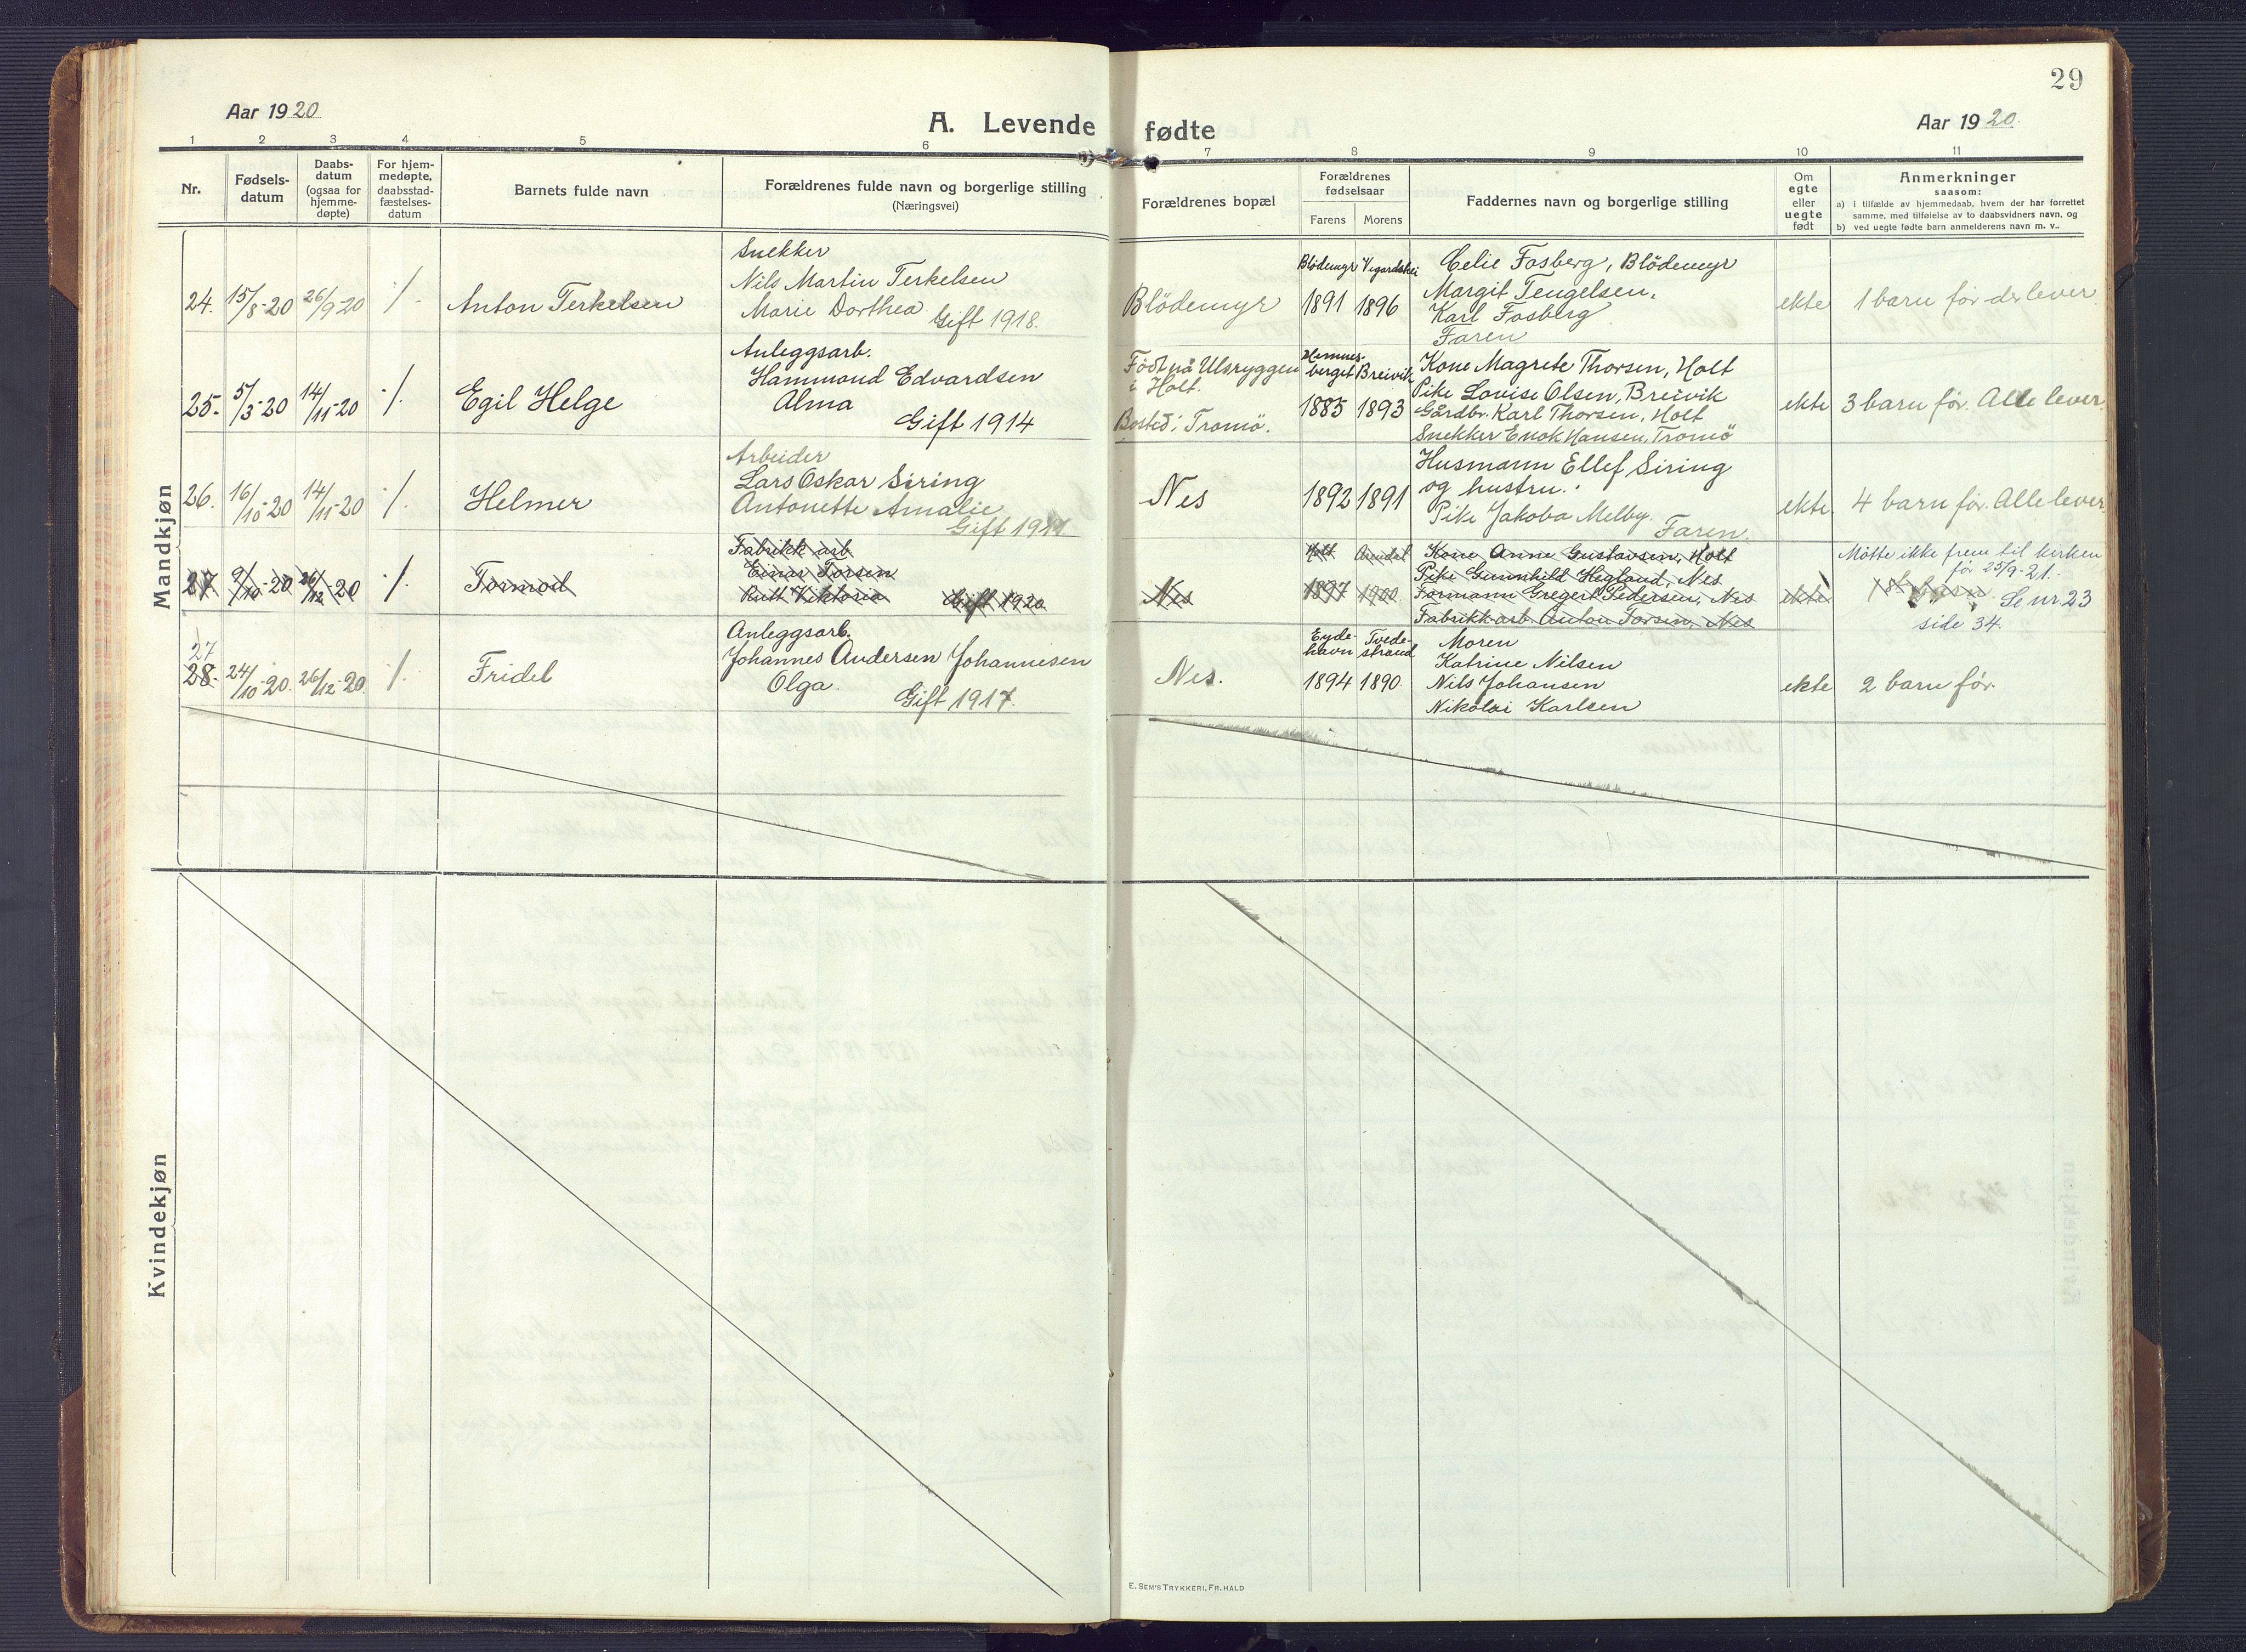 29
Aar 1920
A. Levende fødte
Aar 1920.
1 2 3 4 5 6 7 8 9 10 11
Nr.
Fødsels-
datum
Daabs-
datum
(ogsaa for
hjemme-
døpte)
For hjem-
medøpte,
daabsstad-
fæstelses-
datum
Barnets fulde navn
Forældrenes fulde navn og borgerlige stilling
(Næringsvei)
Forældrenes bopæl
Forældrenes
fødselsaar
Farens Morens
Faddernes navn og borgerlige stilling
Om
egte
eller
uegte
født
Anmerkninger
saasom:
a) i tilfælde av hjemmedaab, hvem der har forrettet
samme, med tilføielse av to daabsvidners navn, og
b) ved uegte fødte barn anmelderens navn m. v..
Mandkjøn
24. 15/8-20 26/9-20 ·/. Anton Terkelsen
Snekker
Nils Martin Terkelsen
Marie Dorthea Gift 1918.
Blödemyr
Blödemyr 1891
Vegardshei 1896
Celie Fosberg, Blödemyr
Margit Tengelsen.
Karl Fosberg
Faren
ekte
1 barn för der lever
25. 5/3-20 14/11-20 ·/. Egil Helge
Anleggsarb.
Hammond Edvardsen
Alma
Gift 1914
Född på Ulsryggen
i Holt.
Bosted: Tromö.
Hemnes-
berget 1885
Breivik 1893
Kone Magrete Thorsen, Holt
Pike Lovise Olsen, Breivik
Gårdbr. Karl Thorsen, Holt
Snekker Enok Hansen, Tromö
ekte
3 barn för. Alle lever.
26. 16/10-20 14/11-20 ·/. Helmer
Arbeider
Lars Oskar Siring
Antonette Amalie
Gift
Nes
1892 1891
Husmann Ellef Siring
og hustru.
Pike Jakoba Melby.
Faren.
ekte.
4 barn för. Alle lever
27 9/10-20 26/12-20 ·/. Tormod
Fabrikk arb
Einar Torsen
Rutt Viktoria
Gift 1920
Nes
Holt 1897
Arendal 1900
Kone Anne Gustavsen, Holt
Pike Gunnhild Hegland, Nes
Formann Gregert Pedersen, Nes
Fabrikkarb. Anton Torsen, Nes
ekte
Mötte ikke frem til kirken
för 25/9-21.
Se nr. 23
side 34.
27
28. 24/10-20. 26/12-20. ·/. Fridel
Anleggsarb.
Johannes Andersen Johannesen
Olga.
Gift 1917.
Nes.
Eyde-
havn 1894
Tvede-
strand 1890.
Moren
Katrine Nilsen
Nils Johansen
Nikolai Karlsen
ekte
2 barn för.
Kvindekjøn
E. SEM'S TRYKKERI, FR. HALD